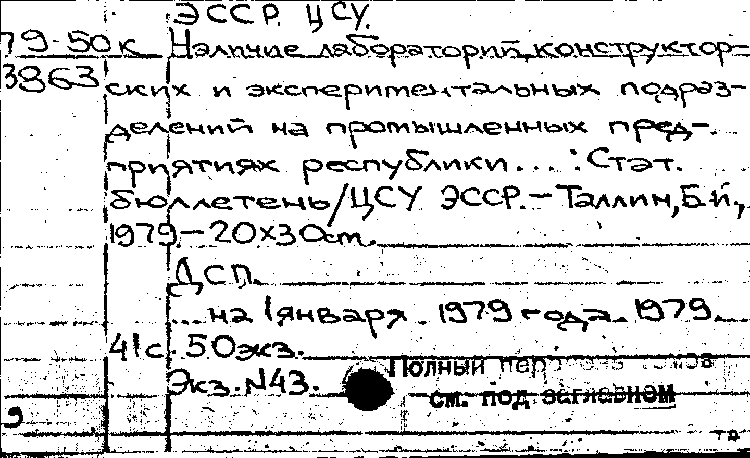 ЭССР. ЦСУ.
79-50к Наличие лабораторий, конструктор-
3863 ских и экспериментальных подраз-
делений на промышленных пред-
приятиях республики... : Стат.
бюллетень/ЦСУ ЭССР.-Таллин, Б.и.,
1979.-20х30см.
ДСП.
...на 1 января 1979 года. 1979.
41с. 50экз.
Экз. N43.
Полный перечень томов
см. под заглавием